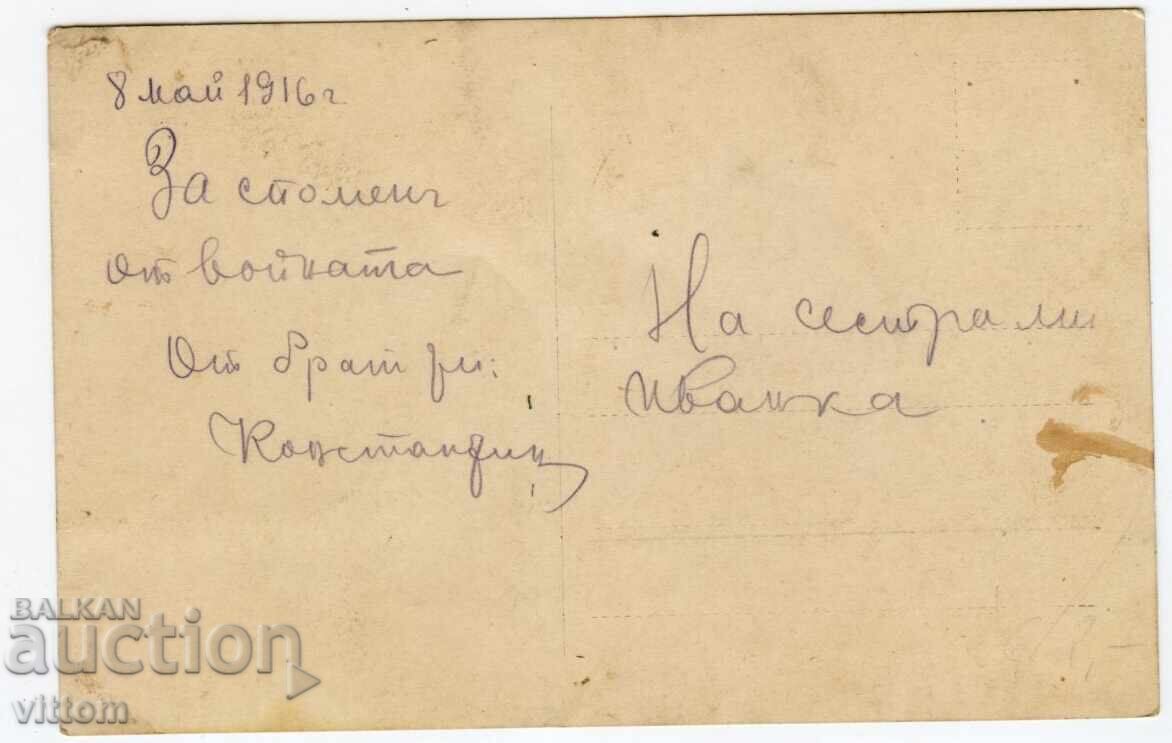 8 май 1916 г
За споменъ
отъ войната
Отъ брат ти:
Константин
На сестра ми
Иванка
BALKAN
auction
vittom